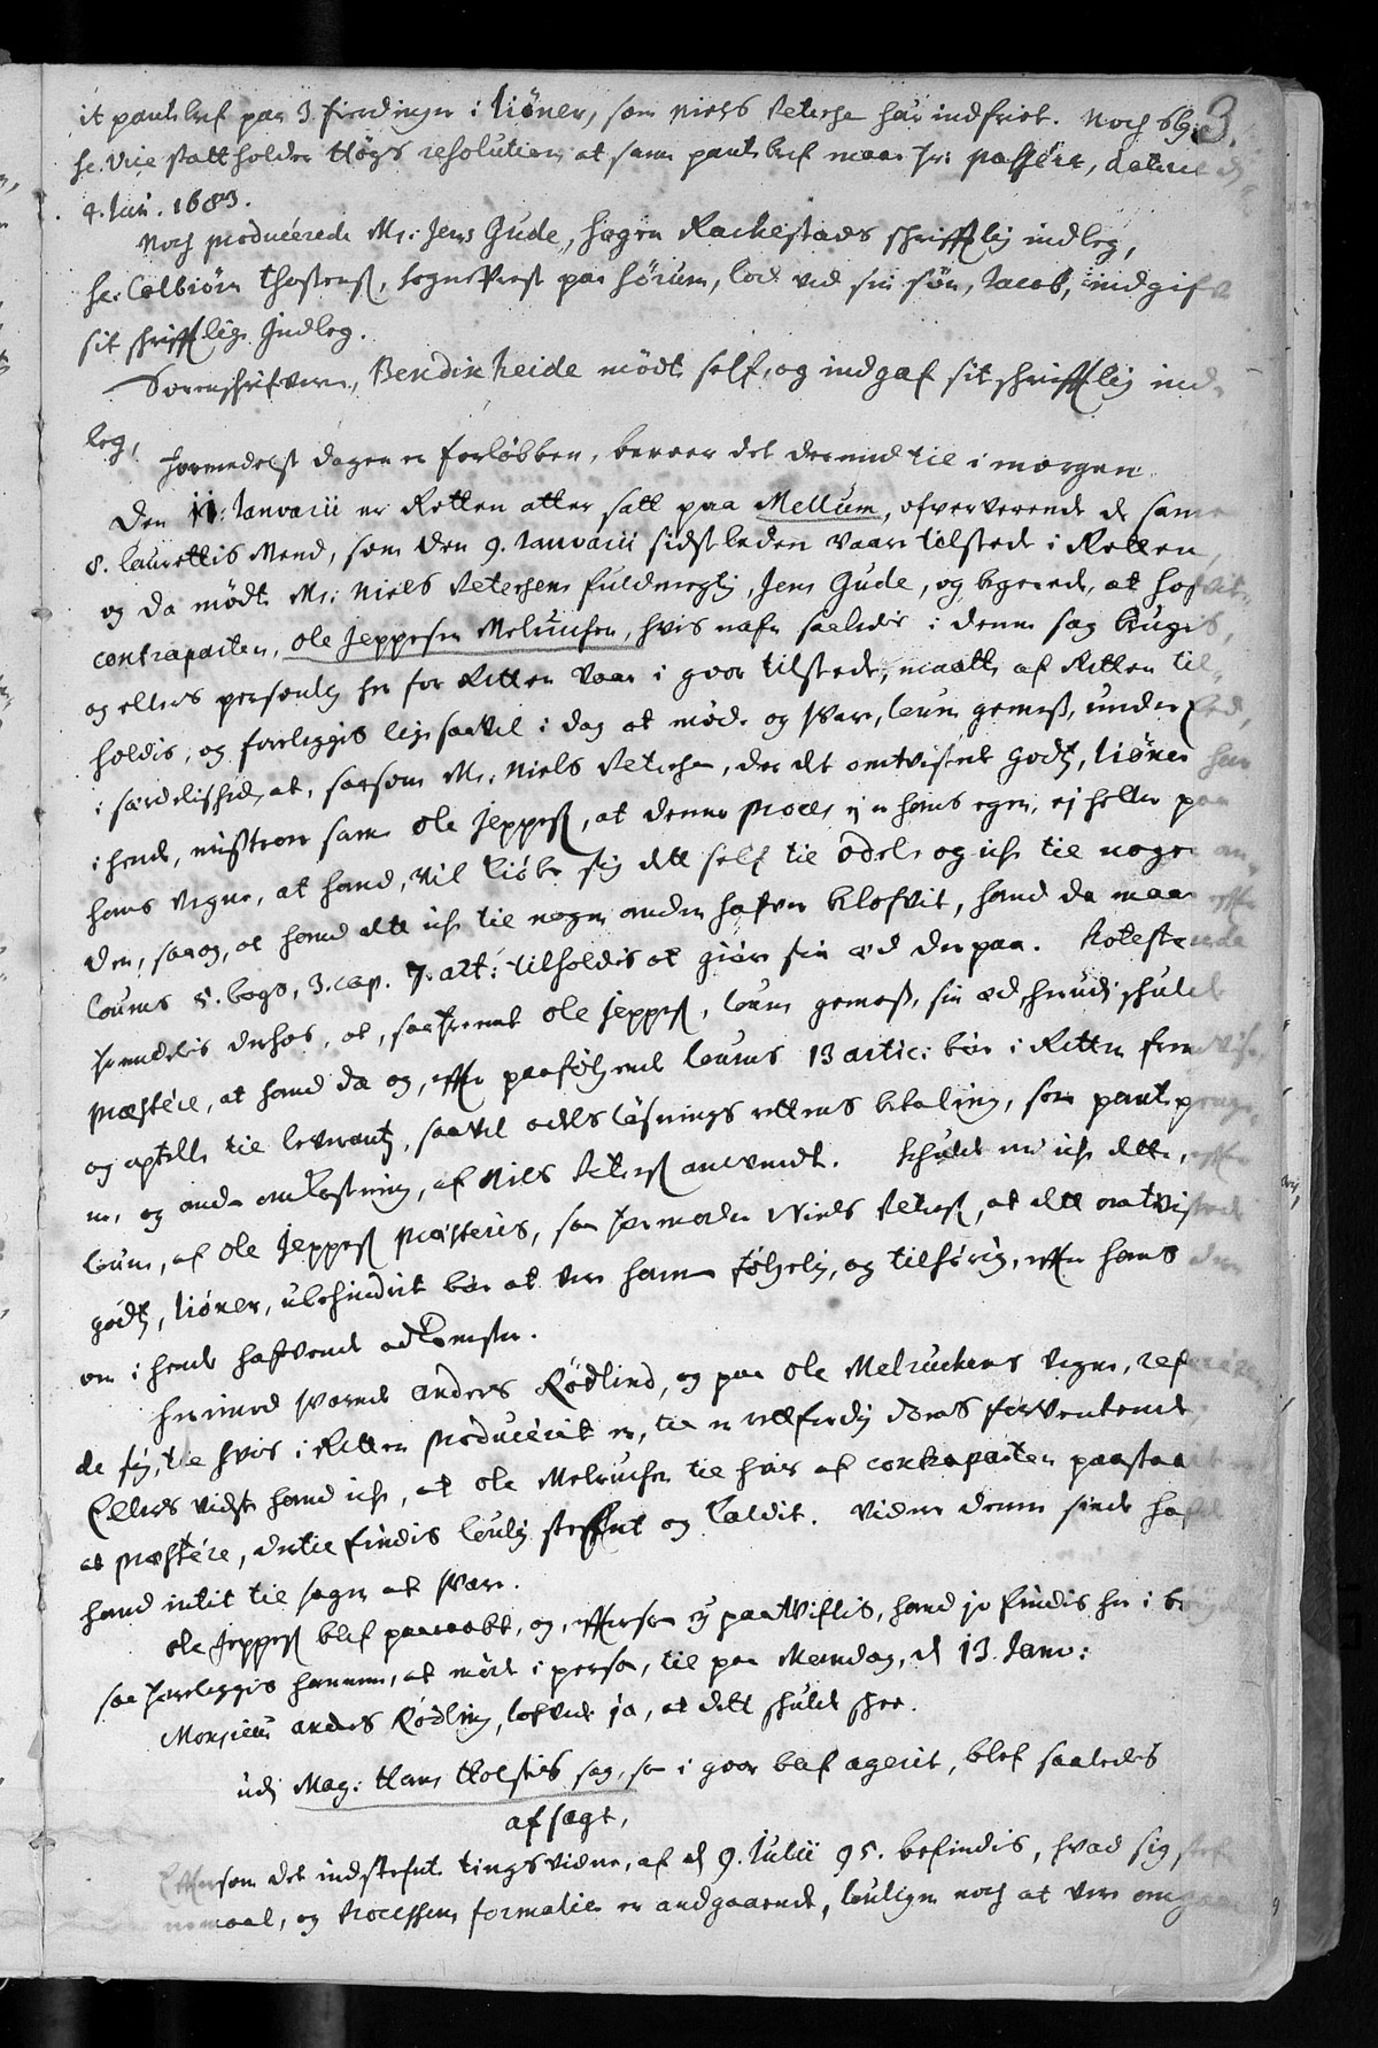 3.
it pantebref paa 3 fierdinger i Liöner, som Niels Petersen har indfriet. Noch
hr. Vice statholder Högs resolution at samme pantebref maae passére, dateret
4. Jun. 1683.
Noch producerede Mr. Jens Gude, Hagen Rackestads schrifftlig indleg,
hr. Colbiörn Thostensß, Sognepræst paa Sörum, lod ved sin sön, Jacob, indgifve
sit schrifftlige Indleg.
Sorenschrifveren, Bendix heide mödte self, og indgaf sit schrifftlig ind-
leg,
Formedelst dagen er forlöbben, beroer det dermed til i morgen
Den 11. Januarii er Retten atter satt paa Mellum, ofververende de samme
8. Laurettis Mend, som den 9. Januarii sidstleden vaar tilstede i Retten,
og da mödte Mr. Niels Petersens fuldmegtig, Jens Gude, og begierede, at
contraparten, Ole Jeppesen Melnichen, hvis nafn saaledis i denne sag brugis,
og ellers personlig her for Retten vaar i gaar tilstede, maatte af Retten til-
holdis, og foreleggis ligesaavel i dag at möde og svare, Louen gemeß,
i særdelished, at, saasom Mr. Niels Petersen, der det omtvistede godtz, Liöner har
i hende, mistroer samme Ole Jeppesß, at denne proces ej er hans egen, ej heller paa
hans vegne, at hand, vil kiöbe sig dett self til odel, og iche til nogen an-
den, saa og, at hand dett iche til nogen anden hafver
lofvit, hand da maa effter
Lovens 5. bogs, 3. cap. 7. art: tilholdis at giöre sin æd derpaa. Protesterede
fremdelis derhos, at, saafremt Ole Jeppesß, Louen gemeß, sin æd herudi schulde
præstére, at hand da og, effter paafölgende Lovens 13 artic: bör i Retten fremvise
og optelle til leverantz, saavel odels lösnings rettens betaling, som pantepenge-
ne, og anden omkostning, af Niels Petersß anvendt. Schulde nu iche dette, effter
Louen, af Ole Jeppesß præsteris, saa formoder Niels Petersß, at dett omtvistede
godtz, Liöner, ubehindret bör at være hannem fölgelig, og tilhörig, effter hans der-
om i hende hafvende adkomster.
Hermed svarede Anders Rödling, og paa Ole Melnichens vegne, refererede
de sig, til hvis i Retten produceret er, til en rettferdig doms forventende,
Ellers vidste hand iche, at Ole Melnichen til hvis af contraparten paastaaet
at præstére, dertil findis loulig steffnet og kaldit. Videre denne sinde hafde
hand intit til sagen at svare.
Ole Jeppesß blef paaraabt, og, effterson ej paatviflis, hand jo findis her i
saa foreleggis hannem, at möde i person, til paa Mandag, d 13. Janv:
Monsieur Anders Rödling, lofvede ja, at dett schulde schee.
udj Mag: Hans Holstes sag, som i gaar blef ageret, blef saaledes
afsagt,
Effersom det indstefnte tingsvidne, af d 9. Julii 95. befindis, hvad sig stef-
nemaal, og Processens formalier er andgaaende, loulig noch at være